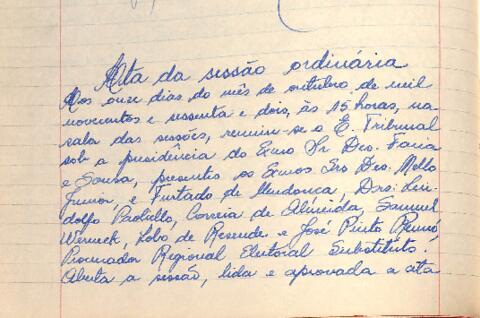 Ata da sessão ordinária
Aos onze dias do mês de outubro de mil
novecentos e sessenta e dois, às 15 horas, na
sala das sessões, reuniu-se o E. Tribunal
sob a presidência do Exmo Sr Des. Faria
e Sousa, presentes os Exmos Srs Des. Mello
Junior, e Furtado de Mendonça, Drs. Lin-
dolfo Paoliello, Correia de Almeida, Samuel
Werneck, Lobo de Resende e José Pinto Renó,
Procurador Regional Eleitoral Substituto.
Aberta a sessão, lida e aprovada a ata